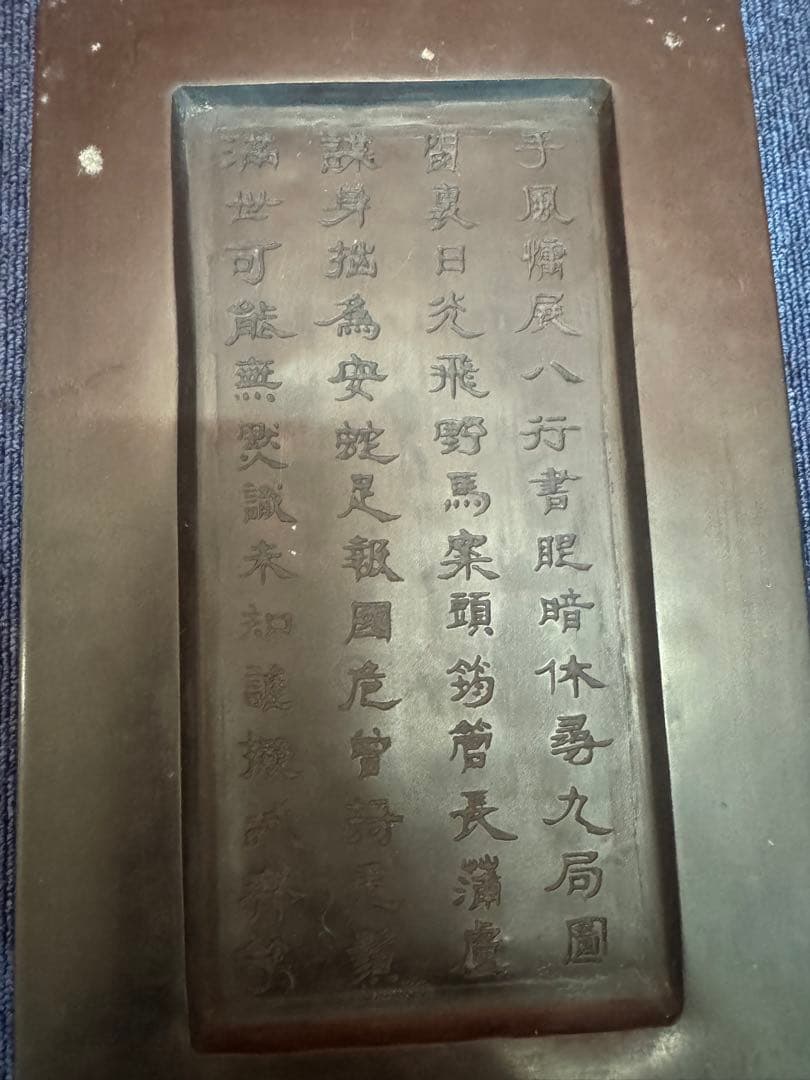 手風慵展八行書眼暗休尋九局圖
窗裏日光飛野馬案頭筠管長蒲盧
謀身拙為安蛇足報國危曾捋虎鬚
滿世可能無默識未知誰擬試齊竽